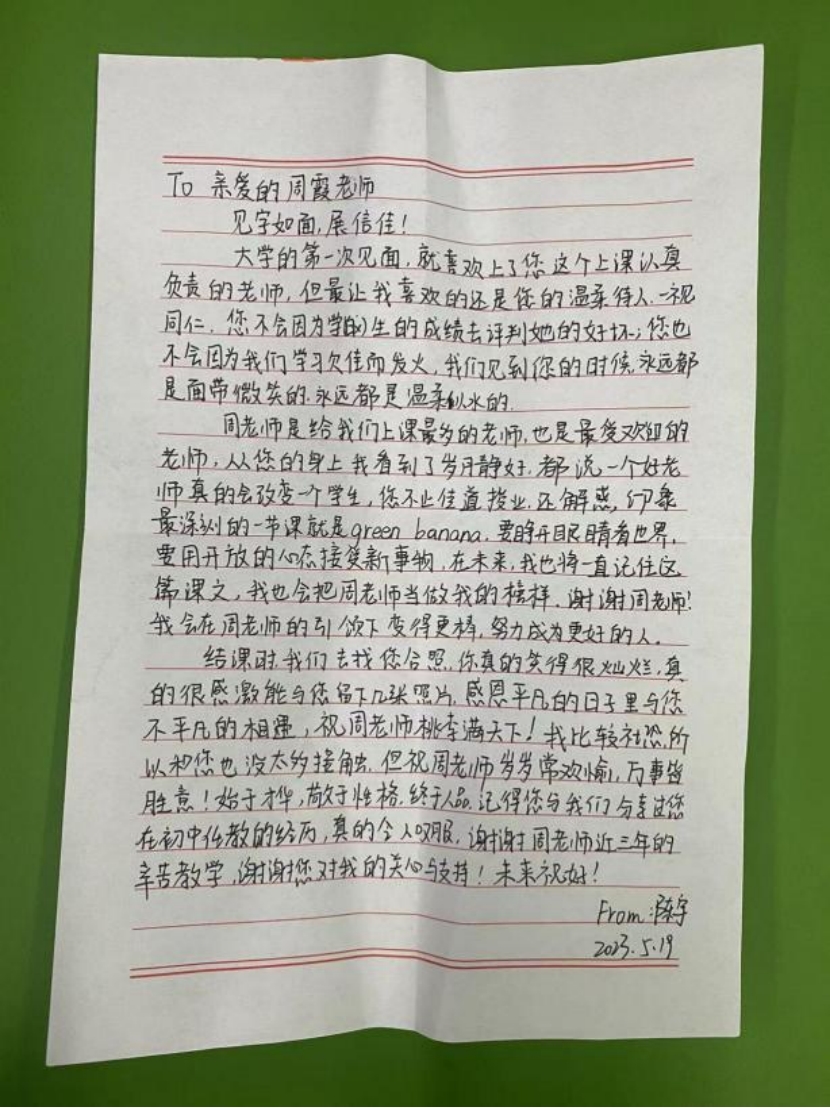 To 亲爱的周霞老师
见字如面,展信佳!
大学的第一次见面,就喜欢上了您这个上课认真
负责的老师,但最让我喜欢的还是您的温柔待人.一视
同仁.您不会因为学生的成绩去评判她的好坏;您也
不会因为我们学习欠佳而发火,我们见到您的时候.永远都
是面带微笑的.永远都是温柔似水的.
周老师是给我们上课最多的老师,也是最受欢迎的
老师,从您的身上我看到了岁月静好.都说一个好老
师真的会改变一个学生,您不止传道授业.还解惑,印象
最深刻的一节课就是green banana.要睁开眼睛看世界.
要用开放的心态接受新事物.在未来,我也将一直记住这
篇课文,我也会把周老师当做我的榜样.谢谢周老师!
我会在周老师的引领下变得更棒,努力成为更好的人.
结课时.我们去找您合照.你真的笑得很灿烂.真
的很感激能与您留下几张照片.感恩平凡的日子里与您
不平凡的相遇,祝周老师桃李满天下!我比较社恐,所
以和您也没太多接触.但祝周老师岁岁常欢愉,万事皆
胜意!始于才华,敬于性格.终于人品.记得您与我们分享过您
在初中任教的经历,真的令人叹服.谢谢周老师近三年的
辛苦教学,谢谢您对我的关心与支持!未来祝好!
From:陈宇
2023.5.19